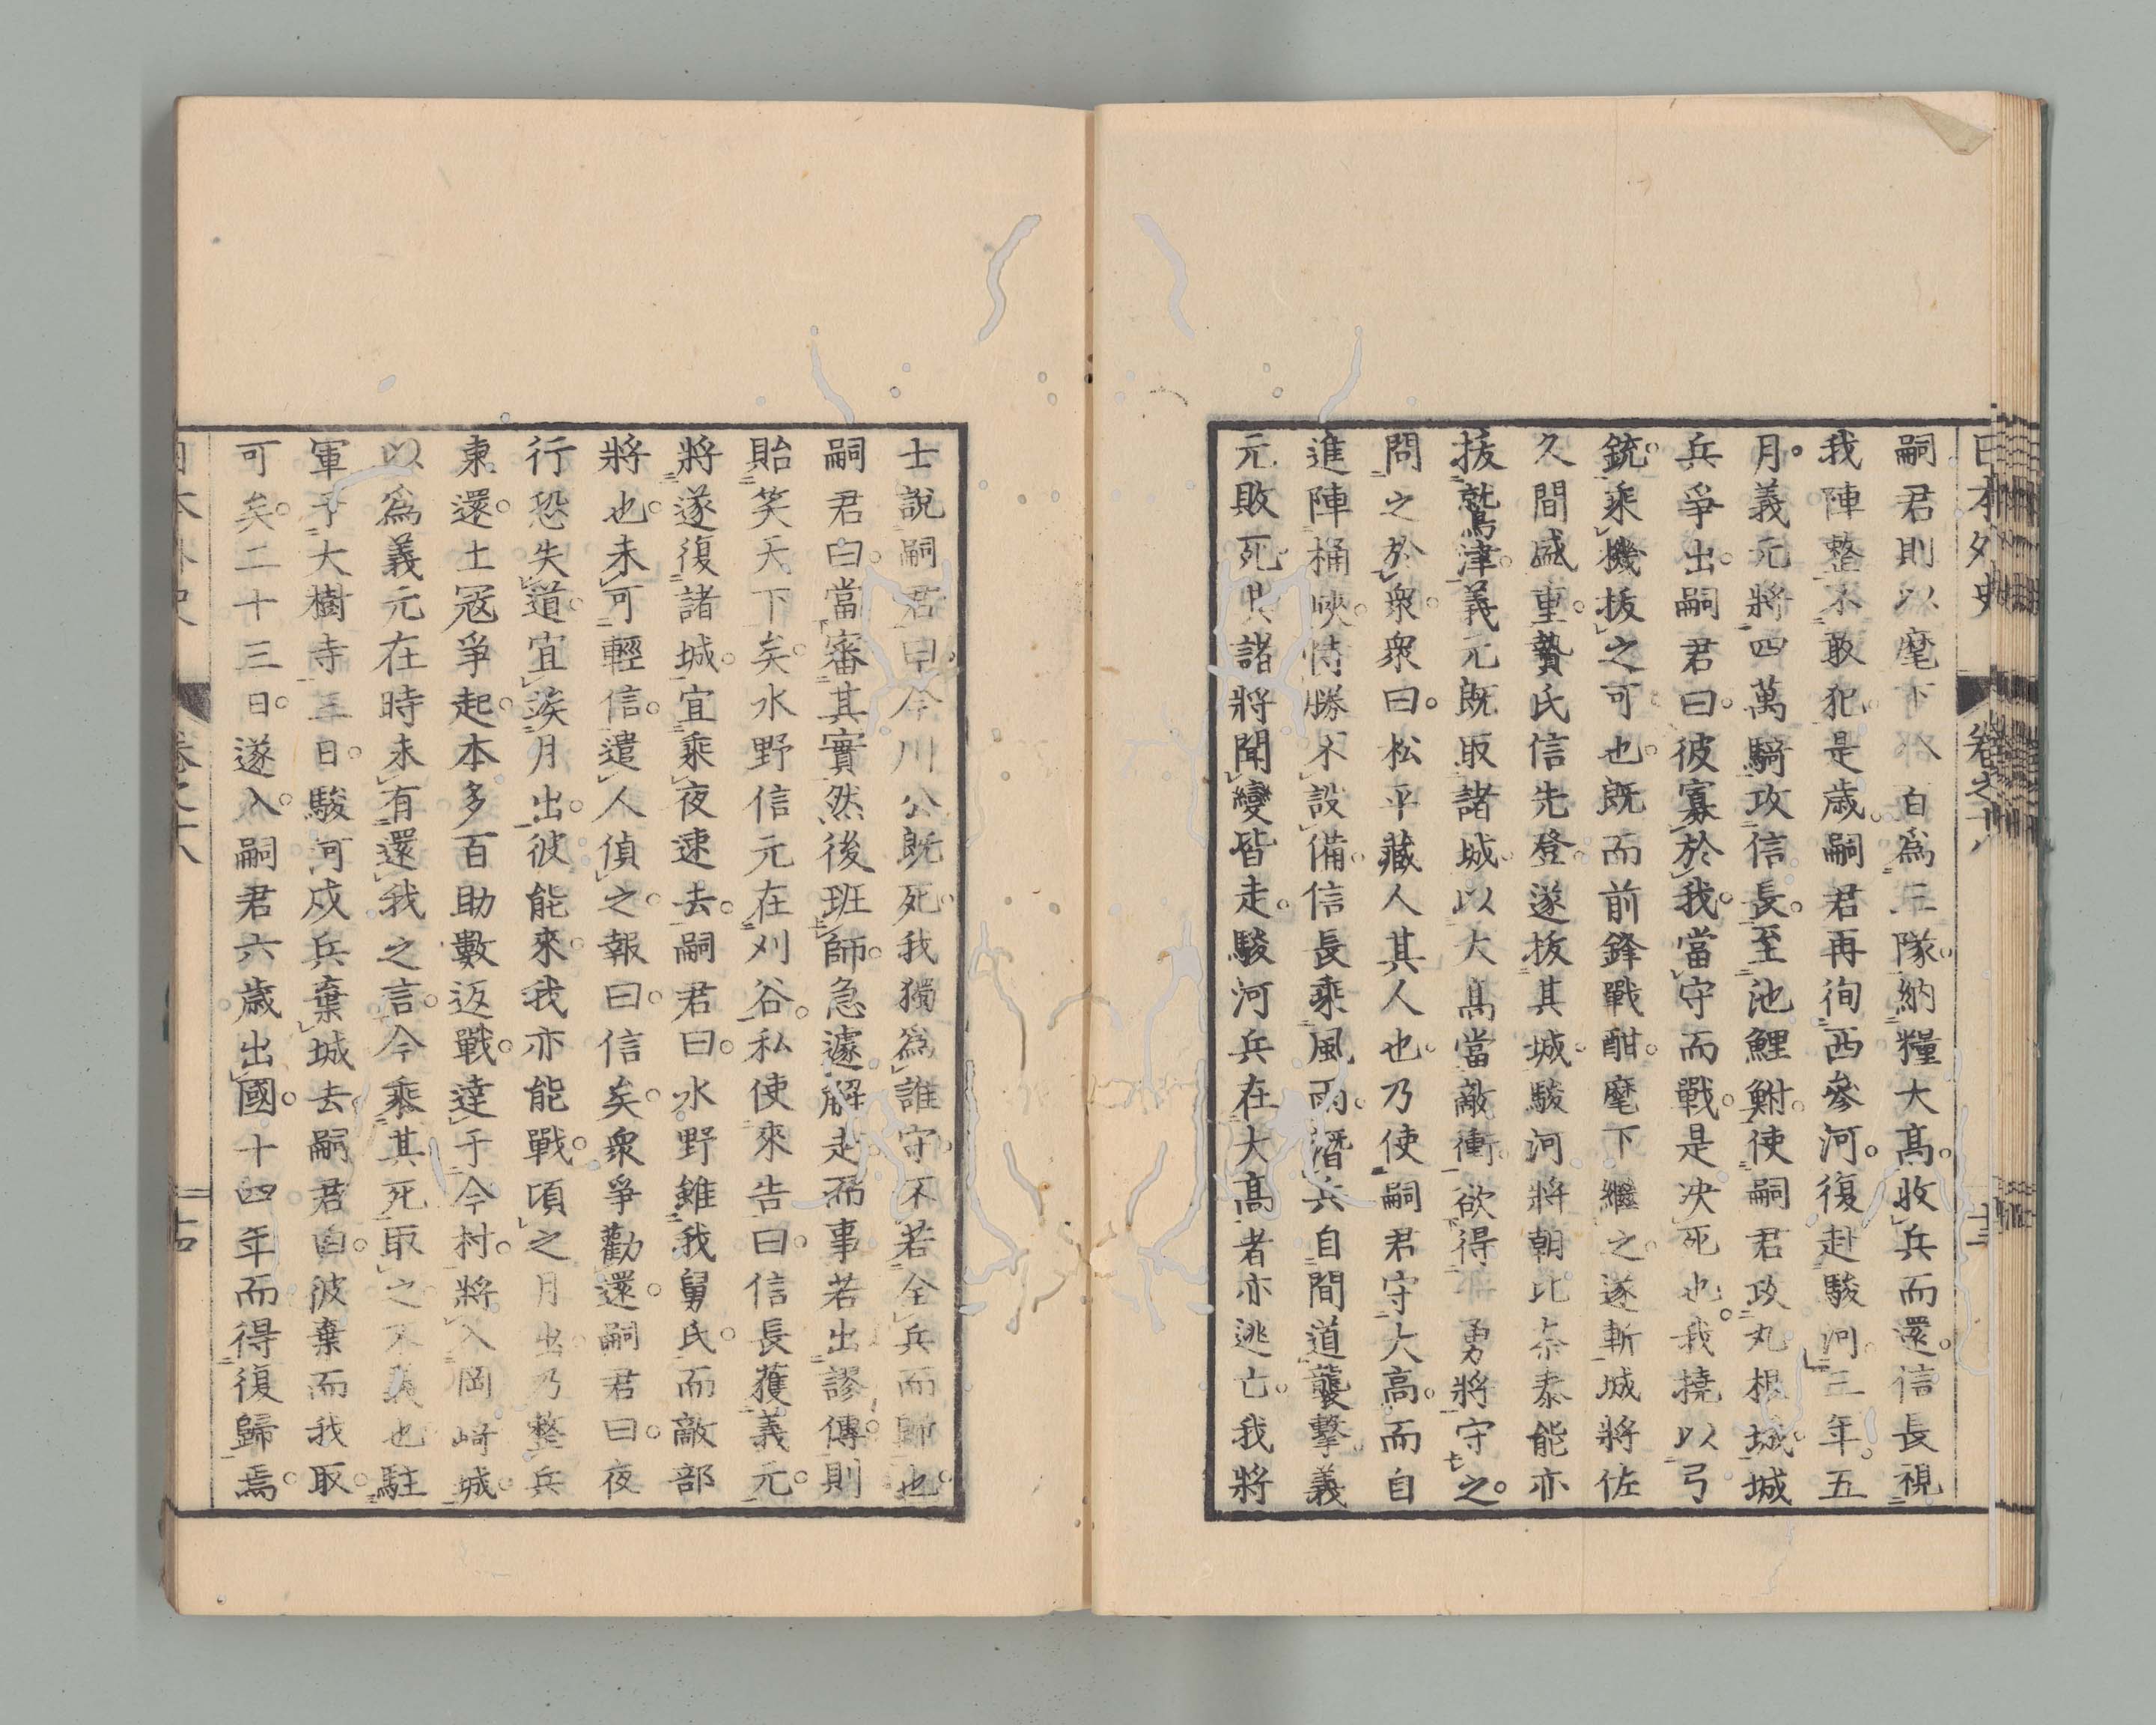 日本外史 卷之十八 十三
嗣君則以麾下八百爲三隊納糧大高收兵而還信長視
我陣整不敢犯是歲嗣君再徇西參河復赴駿河三年五
月義元將四萬騎攻信長至池鯉鮒使嗣君攻丸根城城
兵爭出嗣君曰彼寡於我當守而戰是决死也我撓以弓
銃乘機拔之可也既而前鋒戰酣麾下繼之遂斬城將佐
久間盛重贄氏信先登遂拔其城駿河將朝比奈泰能亦
拔鷲津義元既取諸城以大高當敵衝欲得勇將守之
問之於衆衆曰松平藏人其人也乃使嗣君守大高而自
進陣桶峽恃勝不設備信長乘風雨潛兵自間道襲擊義
元敗死其諸將聞變皆走駿河兵在大高者亦逃亡我將
士說嗣君曰今川公既死我獨爲誰守不若全兵而歸也
嗣君曰當審其實然後班師急遽解走而事若出謬傳則
貽笑天下矣水野信元在刈谷私使來告曰信長獲義元
將遂復諸城宜乘夜速去嗣君曰水野雖我舅氏而敵部
將也未可輕信遣人偵之報曰信矣衆爭勸還嗣君曰夜
行恐失道宜竢月出彼能來我亦能戰頃之月出乃整兵
東還土冦爭起本多百助數返戰達于今村將入岡崎城
以爲義元在時未有還我之言今乘其死取之不義也駐
軍于大樹寺三日駿河戍兵棄城去嗣君曰彼棄而我取
可矣二十三日遂入嗣君六歲出國十四年而得復歸焉
日本外史 卷之十八 十四